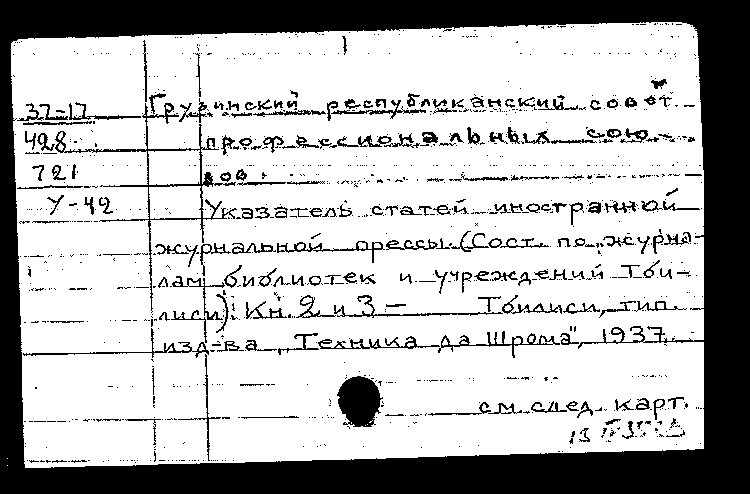 37-17 Грузинский республиканский совет
428 профессиональных сою-
721 зов.
У-42 Указатель статей иностранной
журнальной прессы. (Сост. по журна-
лам библиотек и учреждений Тби-
лиси). Кн. 2 и 3 — Тбилиси, тип.
изд-ва „Техника да Шрома", 1937.
см. след. карт.